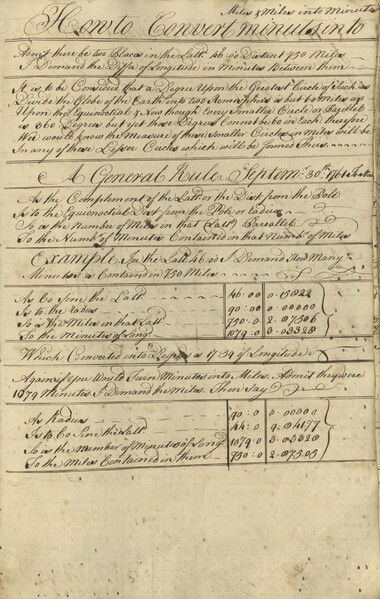 Miles & Miles into Minutes
How to Convert minutes into
Admit there be two Places in the Latt: 46:00 Distant 750 Miles
I Demand the Diffce of Longitude in Minutes Between them
It is to be Consider'd that a Degree Upon the Greatest Circle which
Divide the Globe of the Earth into two Hemispheres is but 60 Miles as
Upon the Equinoctial & Now though Every Smaller Circle or Parallel
is 360 Degrees but yet those Degrees Cannot be 60 on Each therefore
We would know the Measure of these Smaller Circles in Miles will be
In any of these Lesser Circles which will be found thus
A General Rule Septem: 30th 1761
As the Complement of the Latt or the Dist from the Pole
Is to the Equinoctial Dist from the Pole or Radius
So is the Number of Miles in that (Latt) Parallel
To the Numbr of Minutes Contained in that Numbr of Miles
Example In the Latt 46:00 I Demand How Many
Minutes is Contained in 750 Miles
As Co Sine the Latt 46:00 0.15822
Is to the Radius 90:00 0.00000
So is the Miles in that Latt 750:0 2.87506
To the Minutes of Longd 1079:0 3.03328
Which Converted into Degrees is 17:59 of Longitude
Again if you Would Turn Minutes into Miles Admit they were
1079 Minutes I Demand the Miles. Then Say
As Radius 90:0 0.00000
Is to Co Sine the Latt 44:0 9.84177
So is the Number of Minutes of Longd 1079:0 3.03328
To the Miles Contained in them 750:0 2.87505